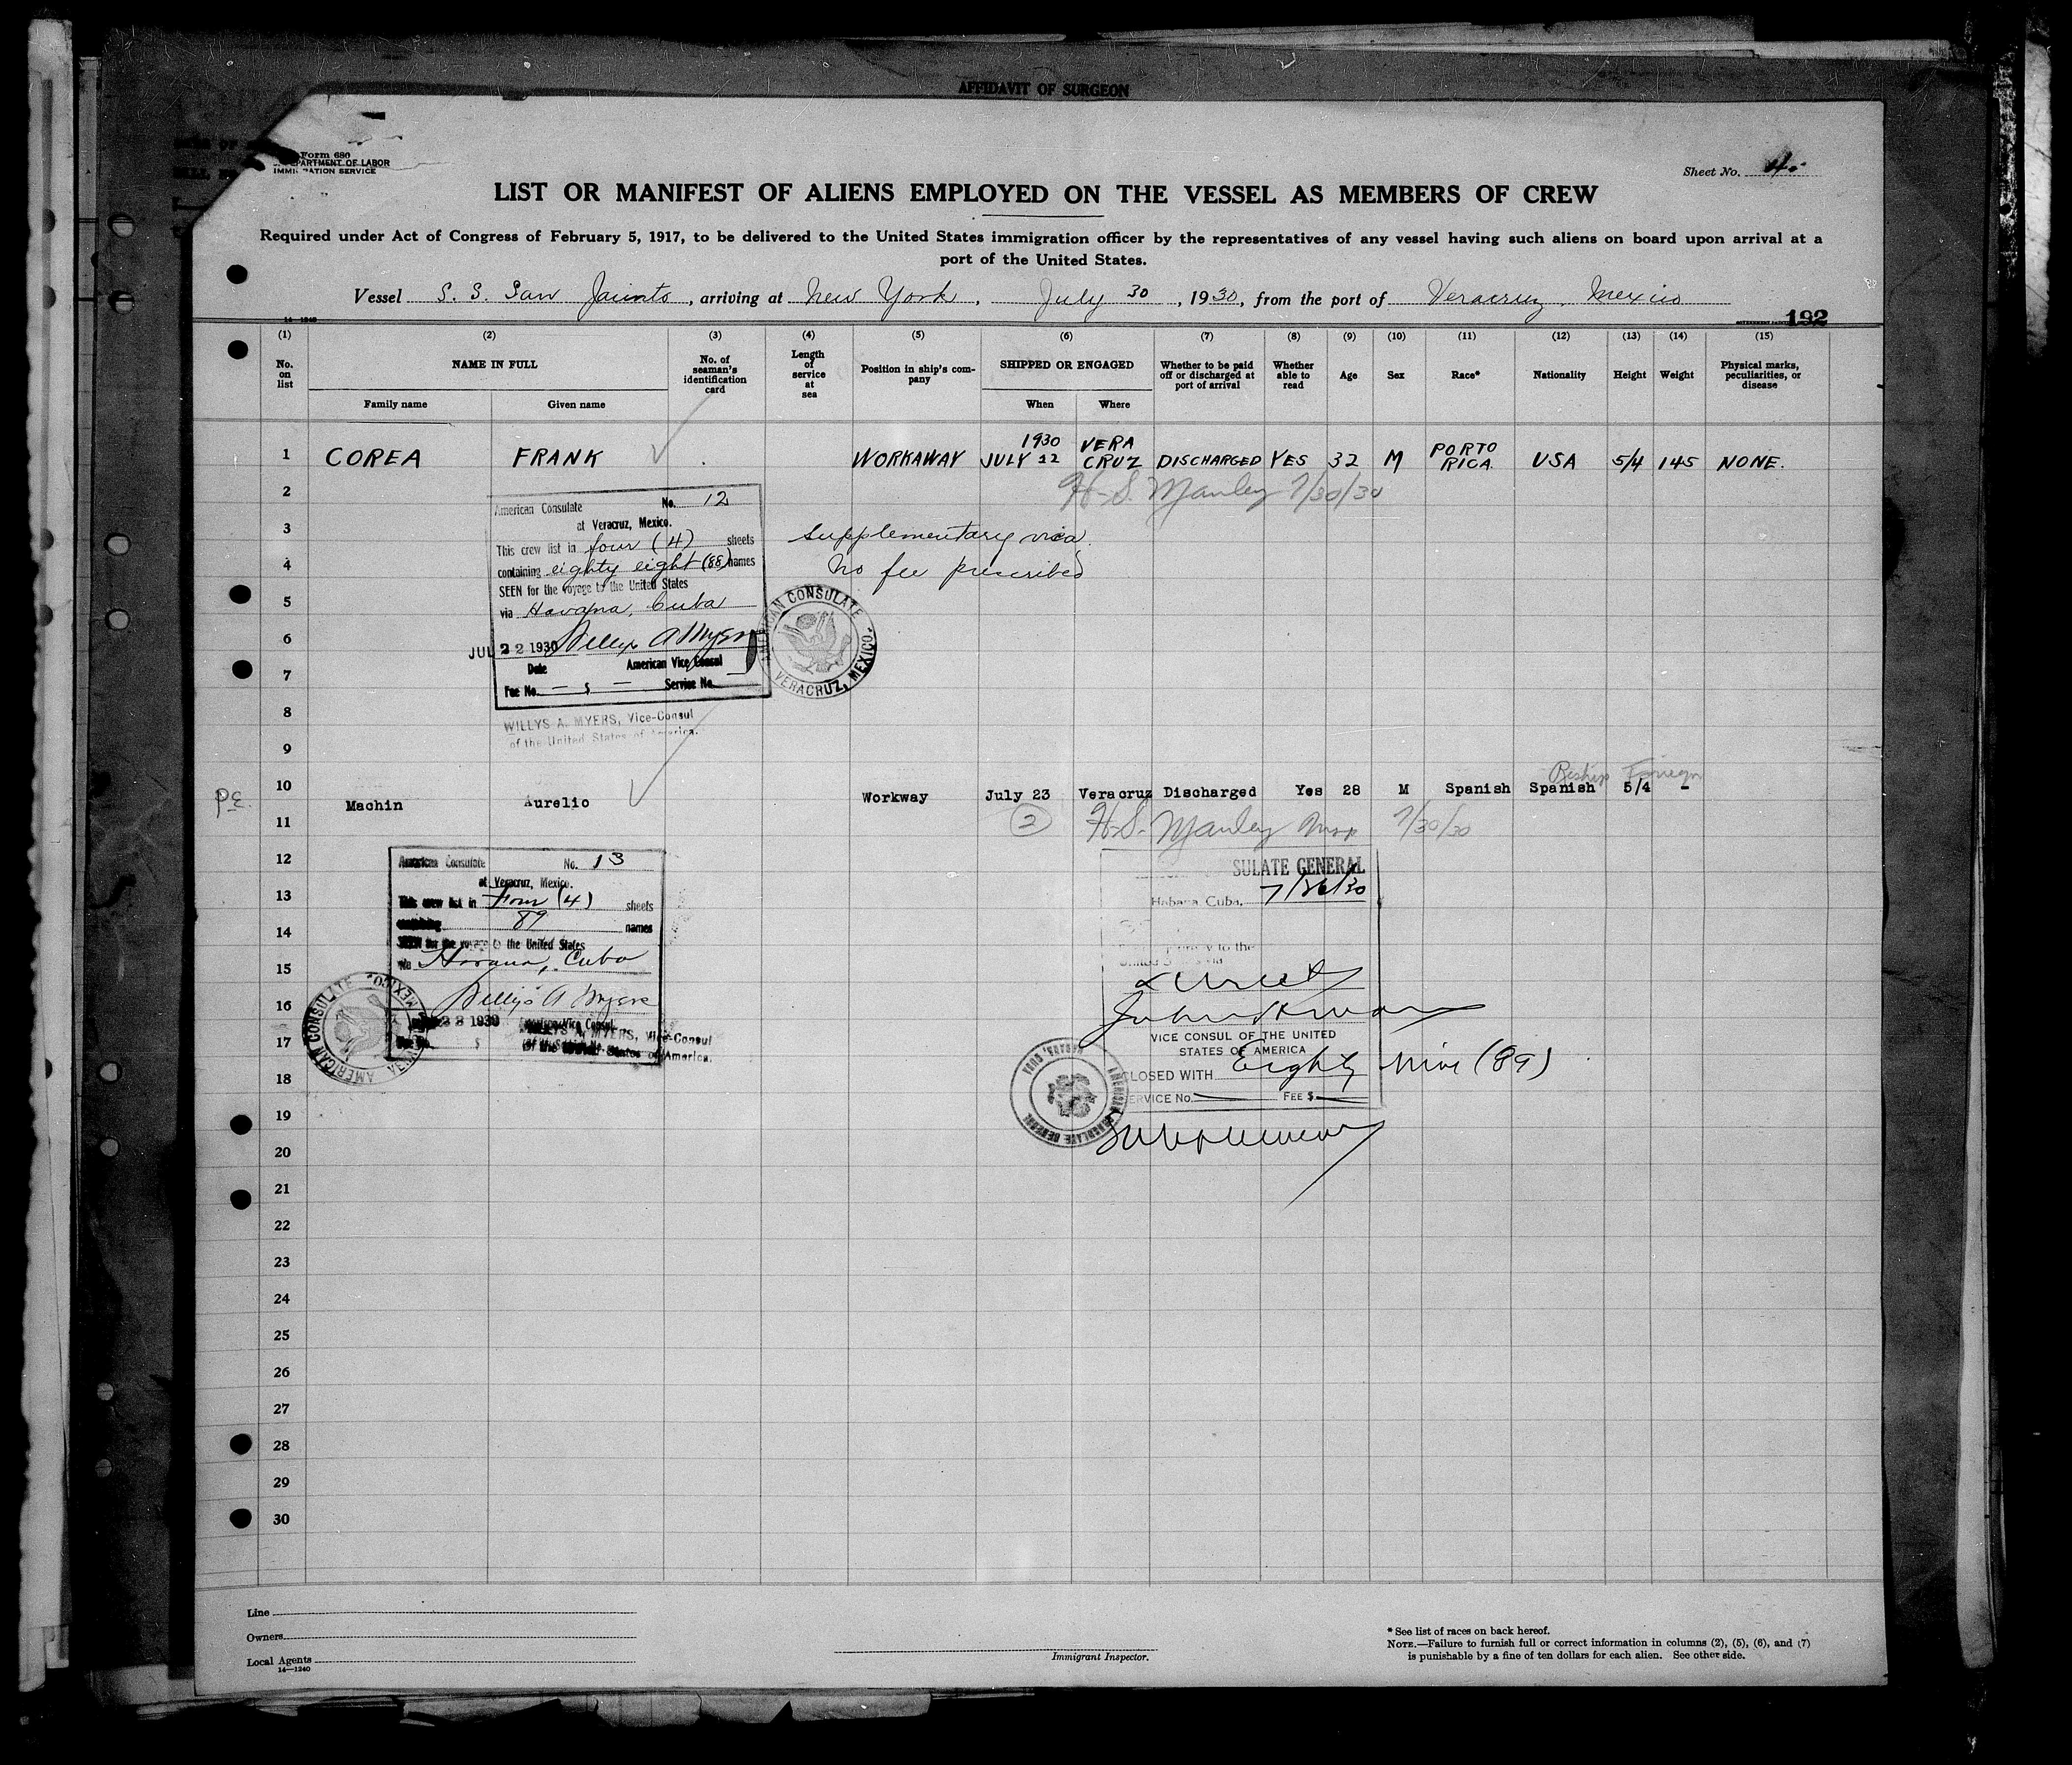 AFFIDAVIT OF SURGEON
Form 680
DEPARTMENT OF LABOR
IMMIGRATION SERVICE
Sheet No. 4.
LIST OR MANIFEST OF ALIENS EMPLOYED ON THE VESSEL AS MEMBERS OF CREW
Required under Act of Congress of February 5, 1917, to be delivered to the United States immigration officer by the representatives of any vessel having such aliens on board upon arrival at a
port of the United States.
Vessel S. S. San Jacinto, arriving at New York, July 30, 1930, from the port of Veracruz, Mexico
14-1240
192
(1) (2) (3) (4) (5) (6) (7) (8) (9) (10) (11) (12) (13) (14) (15)
No. on list NAME IN FULL No. of seaman's identification card Length of service at sea Position in ship's company SHIPPED OR ENGAGED Whether to be paid off or discharged at port of arrival Whether able to read Age Sex Race* Nationality Height Weight Physical marks, peculiarities, or disease
Family name Given name When Where
1 COREA FRANK WORKAWAY 1930 JULY 22 VERA CRUZ DISCHARGED YES 32 M PORTO RICA. USA 5/4 145 NONE.
2 H. S. Manley 7/30/30
American Consulate No. 12
at Veracruz, Mexico.
This crew list in four (4) sheets
containing eighty eight (88) names
SEEN for the voyage to the United States
via Havana, Cuba
JUL 22 1930 Willys A Myers
Date American Vice Consul
Fee No. — $ — Service No.
WILLYS A. MYERS, Vice-Consul
of the United States of America.
Supplementary visa.
No fee prescribed
AMERICAN CONSULATE
VERACRUZ, MEXICO
3
4
5
6
7
8
9
Foreign
PE
10 Machin Aurelio Workway July 23 Veracruz Discharged Yes 28 M Spanish Spanish 5/4 -
11 2 H. S. Manley 7/30/30
American Consulate No. 13
at Veracruz, Mexico.
This crew list in Four (4) sheets
containing 89 names
SEEN for the voyage to the United States
via Havana, Cuba
Willys A Myers
1930 American Vice Consul
Fee No. $
WILLYS A. MYERS, Vice-Consul
of the United States of America.
AMERICAN CONSULATE
MEXICO
SULATE GENERAL
Habana, Cuba. 7/26/30
to the
via
direct
VICE CONSUL OF THE UNITED
STATES OF AMERICA
CLOSED WITH Eighty nine (89)
SERVICE No. FEE $
AMERICAN CONSULATE GENERAL
HABANA, CUBA
12
13
14
15
16
17
18
19
20
21
22
23
24
25
26
27
28
29
30
Line
Owners
Local Agents
14—1240
Immigrant Inspector.
* See list of races on back hereof.
NOTE.—Failure to furnish full or correct information in columns (2), (5), (6), and (7)
is punishable by a fine of ten dollars for each alien. See other side.